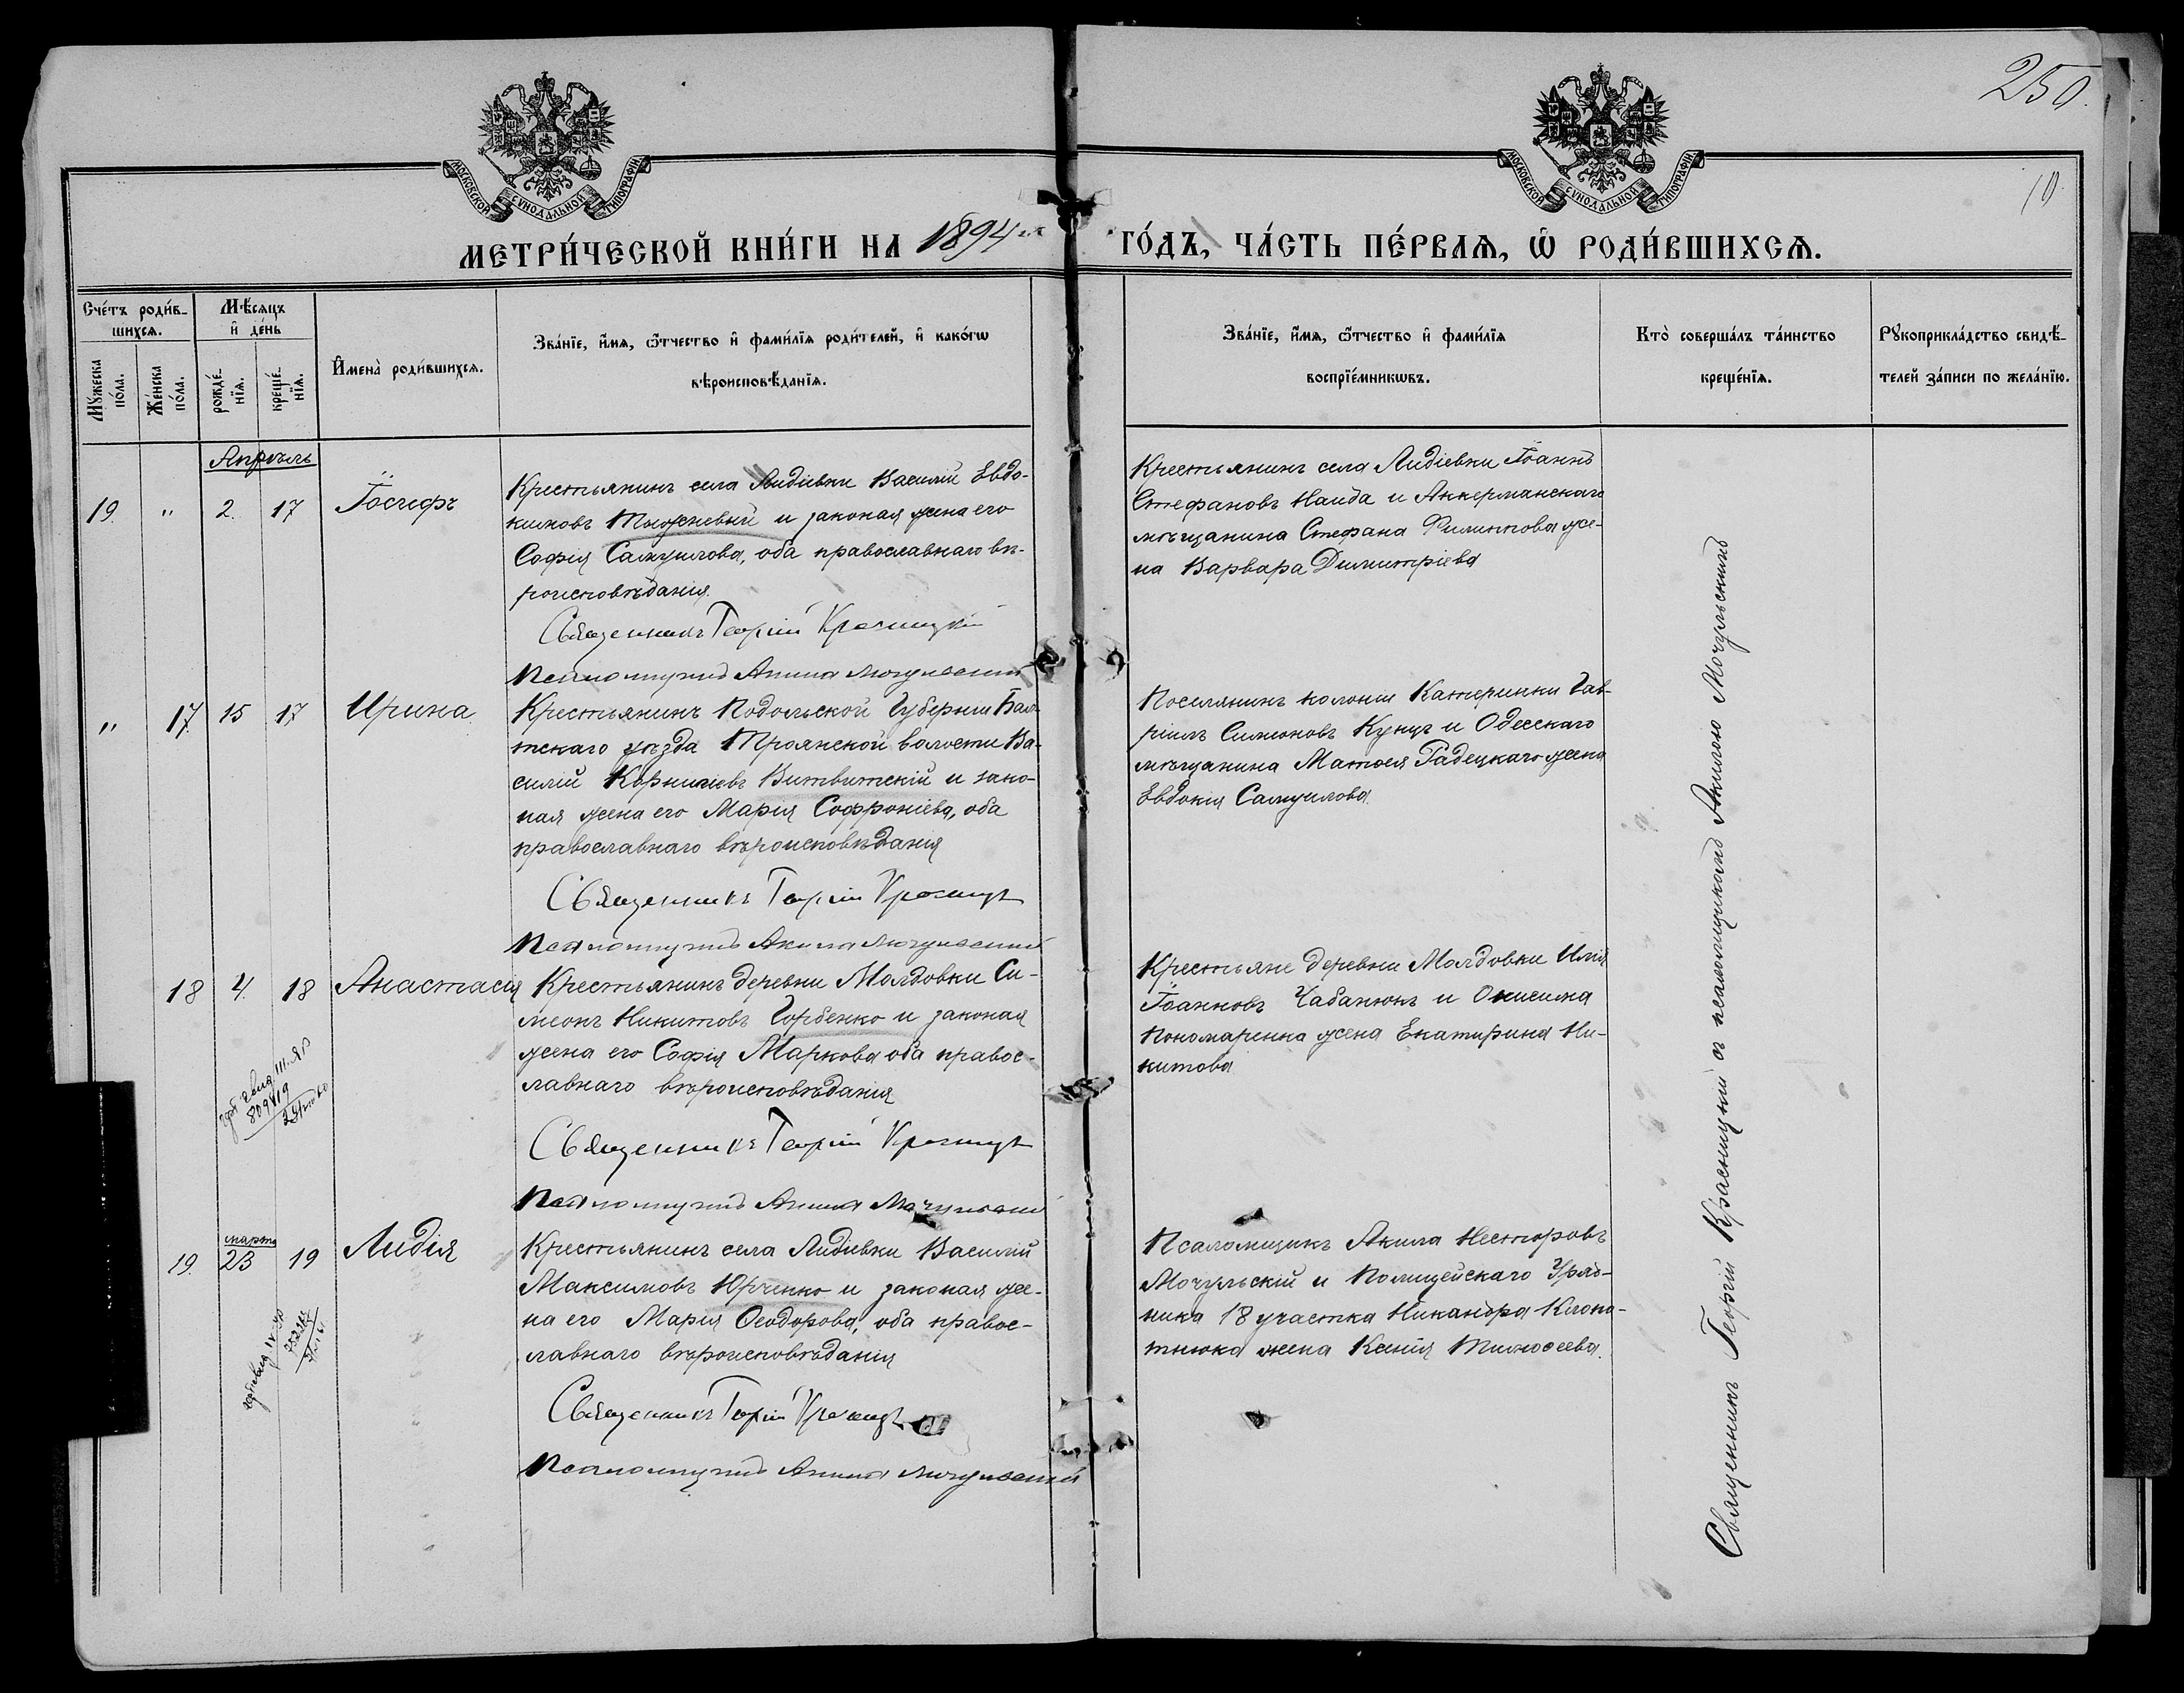 250.
10.
МОСКОВСКОЙ СѴНОДАЛЬНОЙ ТИПОГРАФІИ
МОСКОВСКОЙ СѴНОДАЛЬНОЙ ТИПОГРАФІИ
МЕТРИ́ЧЕСКОЙ КНИ́ГИ НА 1894 ГО́ДЪ, ЧА́СТЬ ПЕ́РВАѦ, Ѡ҆ РОДИ́ВШИХСѦ.
Сче́тъ роди́в-
шихсѧ.
Мѣ́сѧцъ
и҆ де́нь
Мꙋ́жеска по́ла.
Же́нска по́ла.
рожде́-
нїѧ.
креще́-
нїѧ.
И҆мена̀ роди́вшихсѧ.
Зва́нїе, и҆́мѧ, ѻ҆́тчество и҆ фами́лїѧ роди́телей, и҆ како́гѡ
вѣроисповѣ́данїѧ.
Зва́нїе, и҆́мѧ, ѻ҆́тчество и҆ фами́лїѧ
воспрїе́мникѡвъ.
Кто̀ соверша́лъ та́инство
креще́нїѧ.
Рꙋкоприкла́дство свидѣ́-
телей за́писи по жела́нїю.
Апрѣль
19. " 2. 17 Іосифъ
Крестьянинъ села Лидіевки Василій Евдо-
кимовъ и законая жена его
Софія Самуилова, оба православнаго вѣ-
роисповѣданія.
Священникъ Георгій Красницкій
Псаломщикъ Акила Мочульскій
Крестьянинъ села Лидіевки Іоаннъ
Стефановъ Наида и Аккерманскаго
мѣщанина Стефана Филиппова же-
на Варвара Димитріева
" 17. 15 17 Ирина
Крестьянинъ Подольской Губерніи Бал-
тскаго уѣзда Троянской волости Ва-
силій Корниліевъ Витвитскій и зако-
ная жена его Марія Софроніева, оба
православнаго вѣроисповѣданія
Священникъ Георгій Красницк
Псаломщикъ Акила Мочульскій
Поселянинъ колоніи Катеринки Гав-
ріилъ Симеоновъ Кунцъ и Одесскаго
мѣщанина Матѳея Радецкаго жена
Евдокія Самуилова.
18 4. 18 Анастасія
Крестьянинъ деревни Молдовки Си-
меонъ Никитовъ Горбенко и законая
жена его Софія Маркова оба правос-
лавнаго вѣроисповѣданія
Священникъ Георгій Красницк
Псаломщикъ Акила Мочульскій
Крестьяне деревни Молдовки Илія
Іоанновъ Чабанюкъ и Онисима
Пономаренка жена Екатирина Ни-
китова
марта
19. 23 19 Лидія
Крестьянинъ села Лидіевки Василій
Максимовъ Юрченко и законая же-
на его Марія Ѳеодорова, оба правос-
лавнаго вѣроисповѣданія
Священникъ Георгій Красницк
Псаломщикъ Акила Мочульскій
Псаломщикъ Акила Несторовъ
Мочульскій и Полицейскаго Уряд-
ника 18 участка Никанора Клопо-
тнюка жена Ксенія Тимоѳеева.
Священникъ Георгій Красницкій съ псаломщикомъ Акилою Мочульскимъ